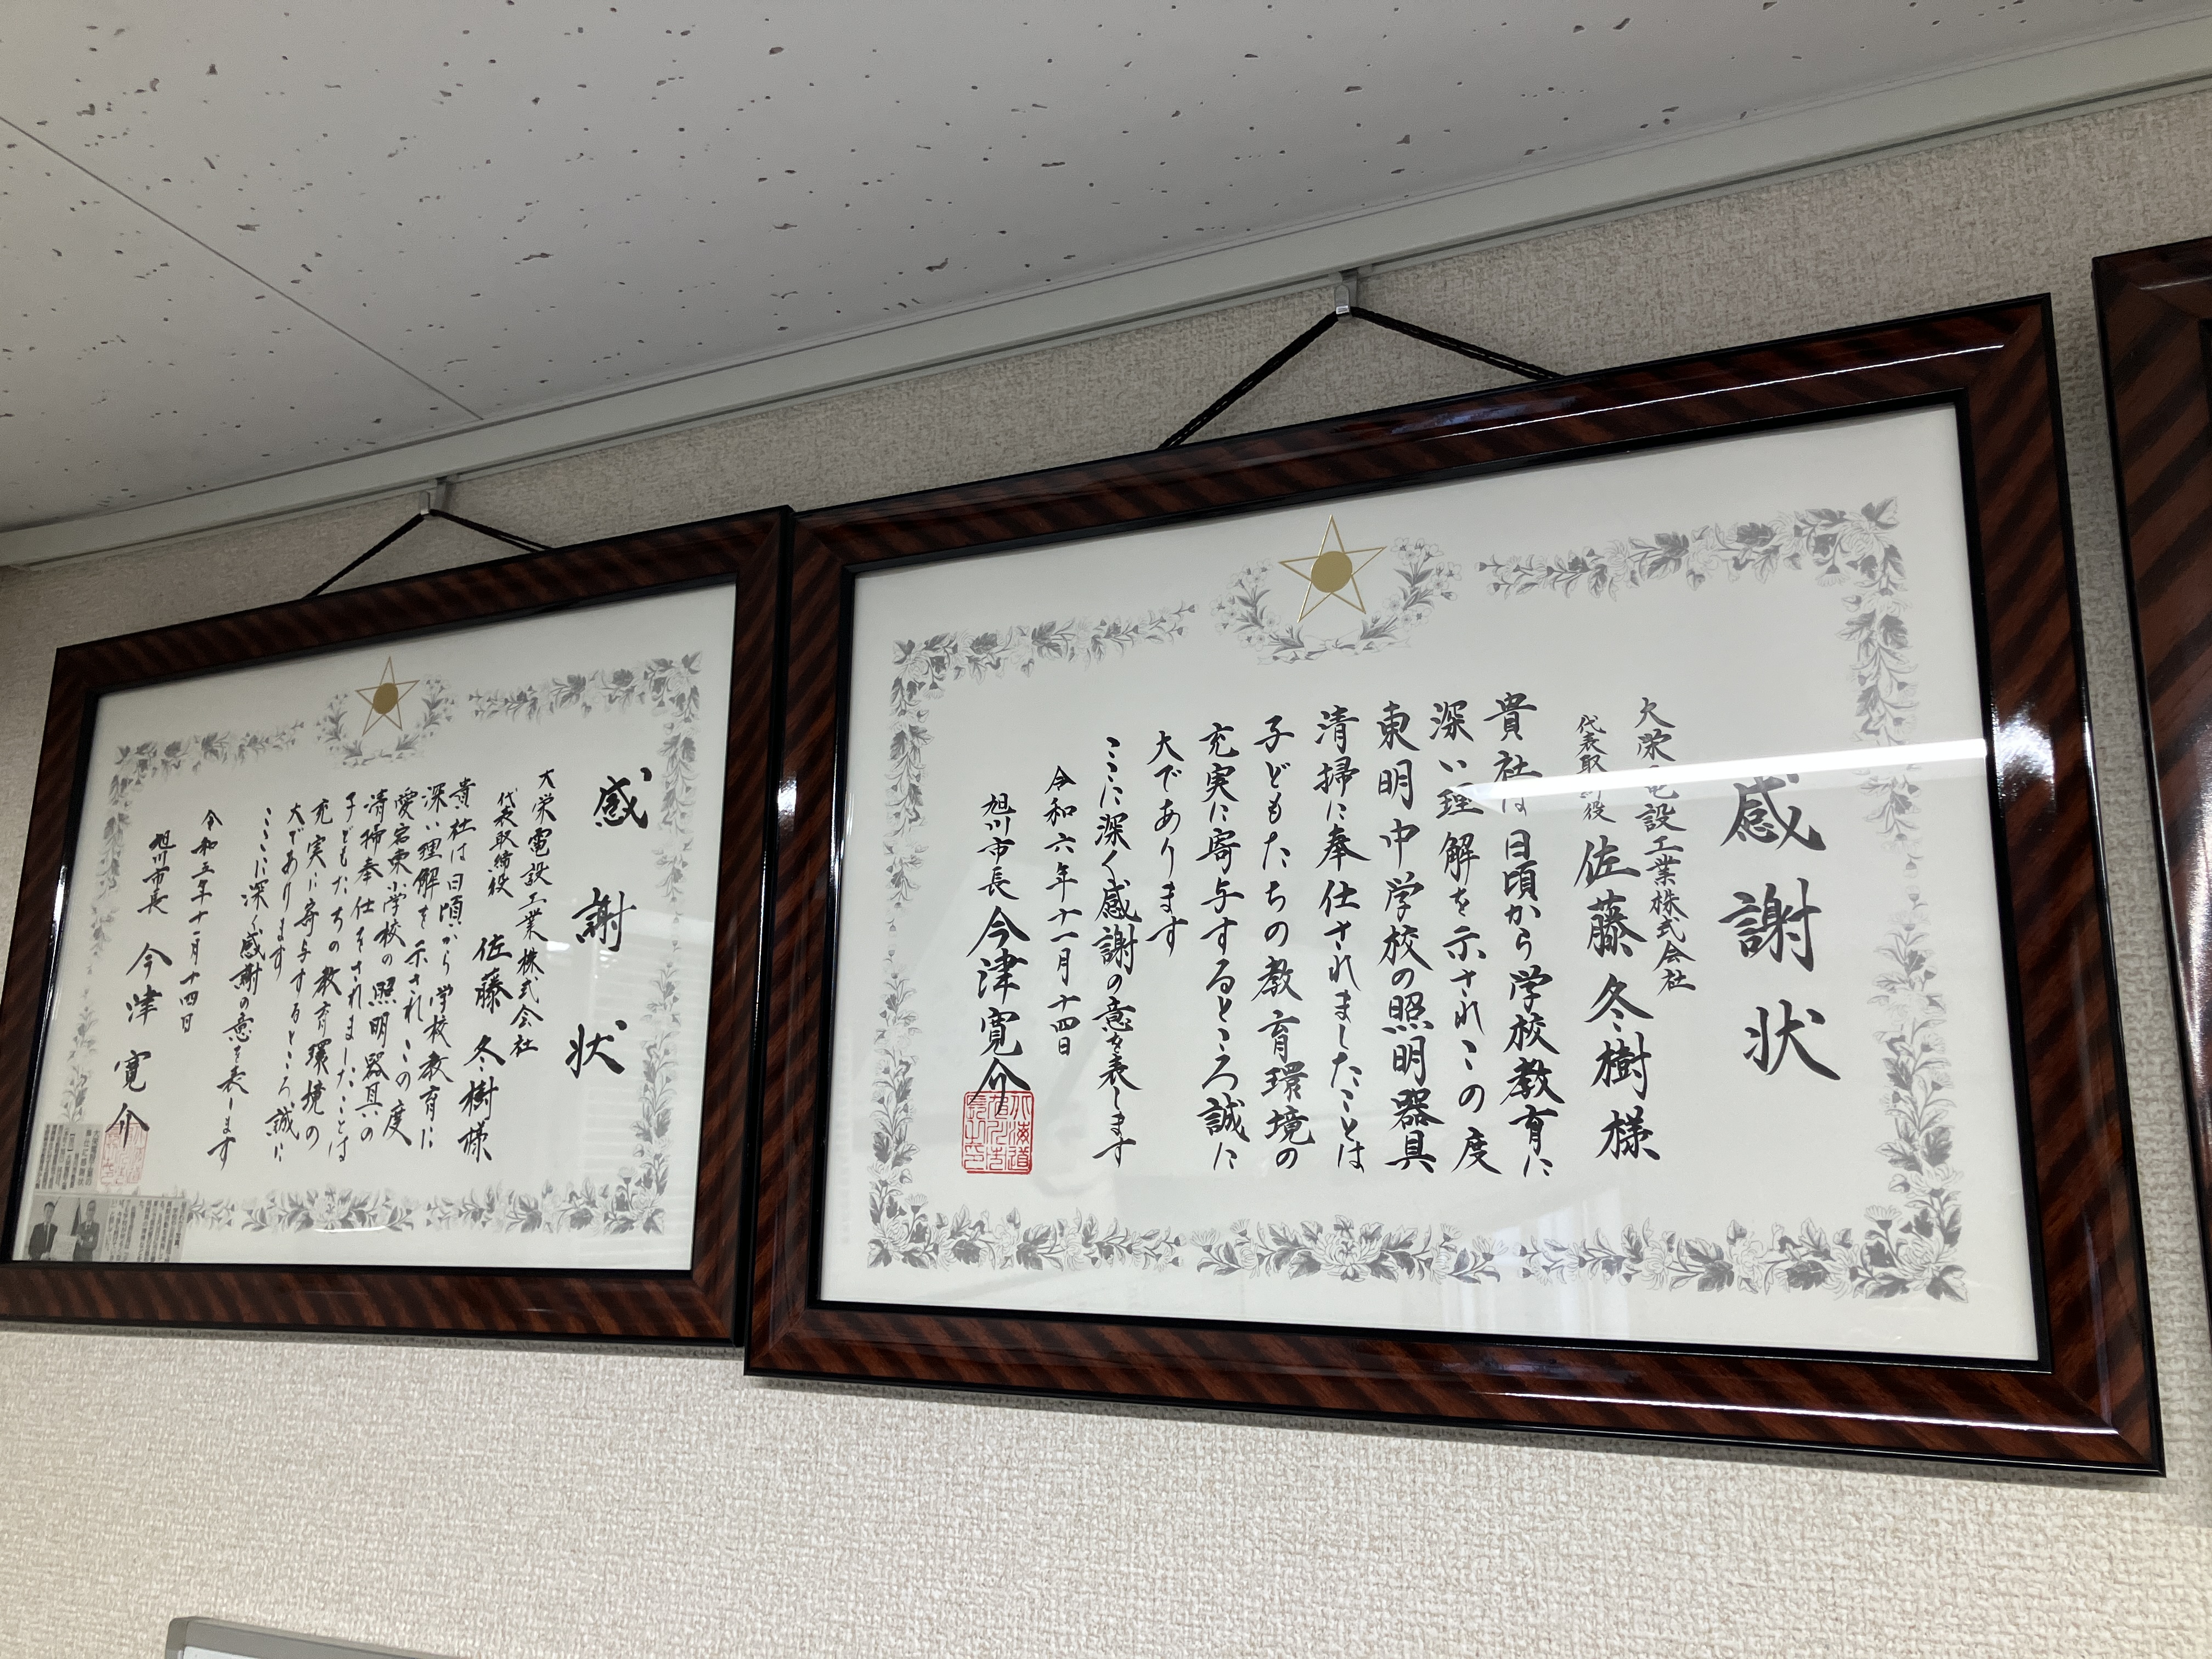 感謝状
大栄電設工業株式会社
代表取締役 佐藤冬樹様
貴社は日頃から学校教育に
深い理解を示されこの度
東明中学校の照明器具
清掃に奉仕されましたことは
子どもたちの教育環境の
充実に寄与するところ誠に
大であります
ここに深く感謝の意を表します
令和六年十一月十四日
旭川市長 今津寛介
感謝状
大栄電設工業株式会社
代表取締役 佐藤冬樹様
貴社は日頃から学校教育に
深い理解を示されこの度
愛宕東小学校の照明器具の
清掃奉仕をされましたことは
子どもたちの教育環境の
充実に寄与するところ誠に
大であります
ここに深く感謝の意を表します
令和五年十一月十四日
旭川市長 今津寛介